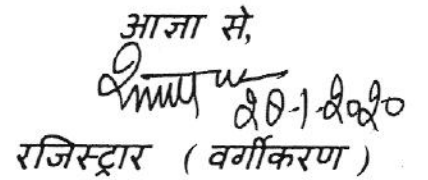 आज्ञा से,
28-1-2020
रजिस्ट्रार ( वर्गीकरण )